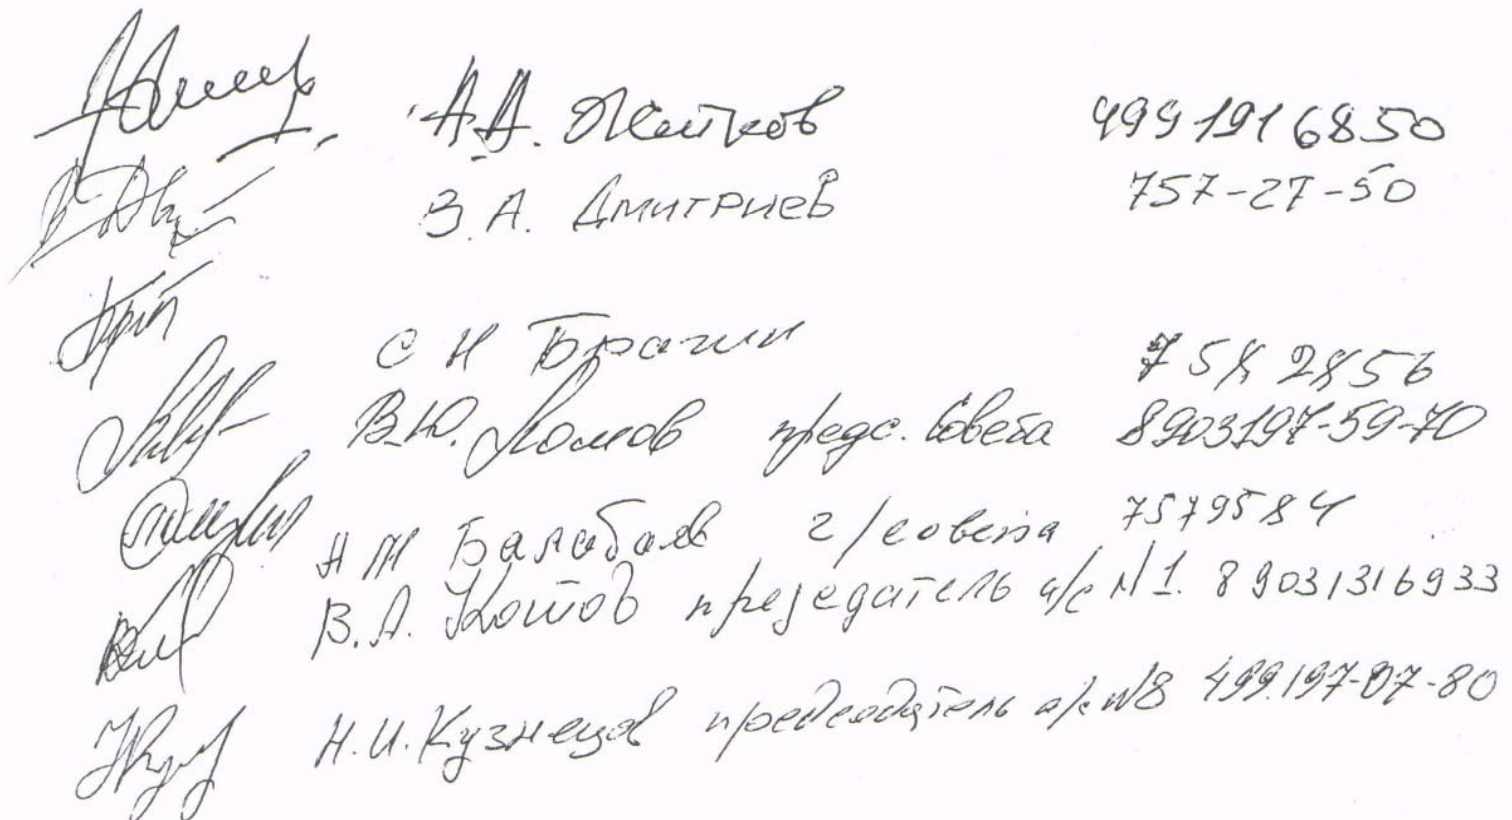 А.А. Жейков 499 191 68 50
В.А. Дмитриев 757-27-50
С Н Брагин 758 28 56
В.Ю. Комов предс. Совета 8903197-59-70
Н М Балабаев г/совета 7579584
В.А. Котов предедатель а/с N1. 89031316933
Н.И. Кузнецов председатель а/с N8 499.197-07-80